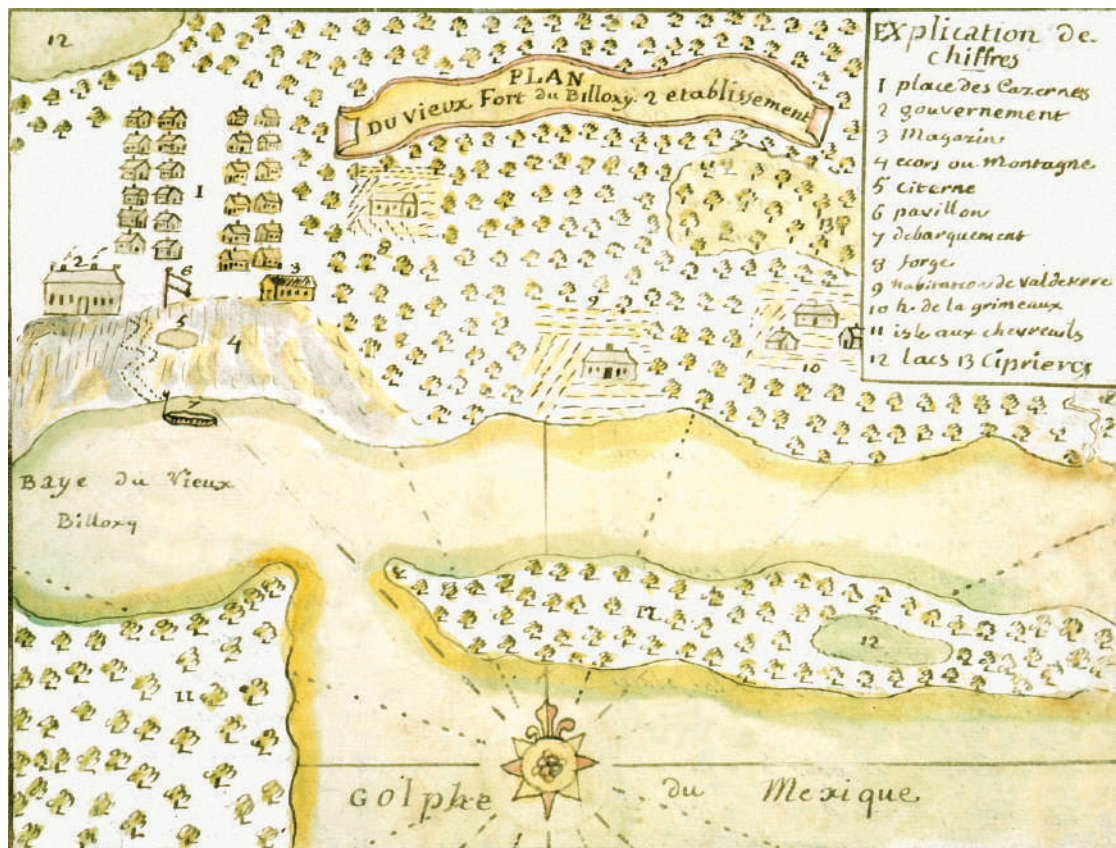 PLAN
DU Vieux Fort du Billoxy. 2 etablissement
EXplication de
chiffres
1 place des Cazernes
2 gouvernement
3 Magazin
4 ecors ou Montagne
5 Citerne
6 pavillon
7 debarquement
8 forge
9 habitation de Valdeterre
10 h. de la grimeaux
11 isle aux chevreuils
12 Lacs 13 Ciprieres
12
1
2
6
3
5
4
7
8
9
10
13
Baye du Vieux
Billoxy
11
11
12
GOlphe du Mexique